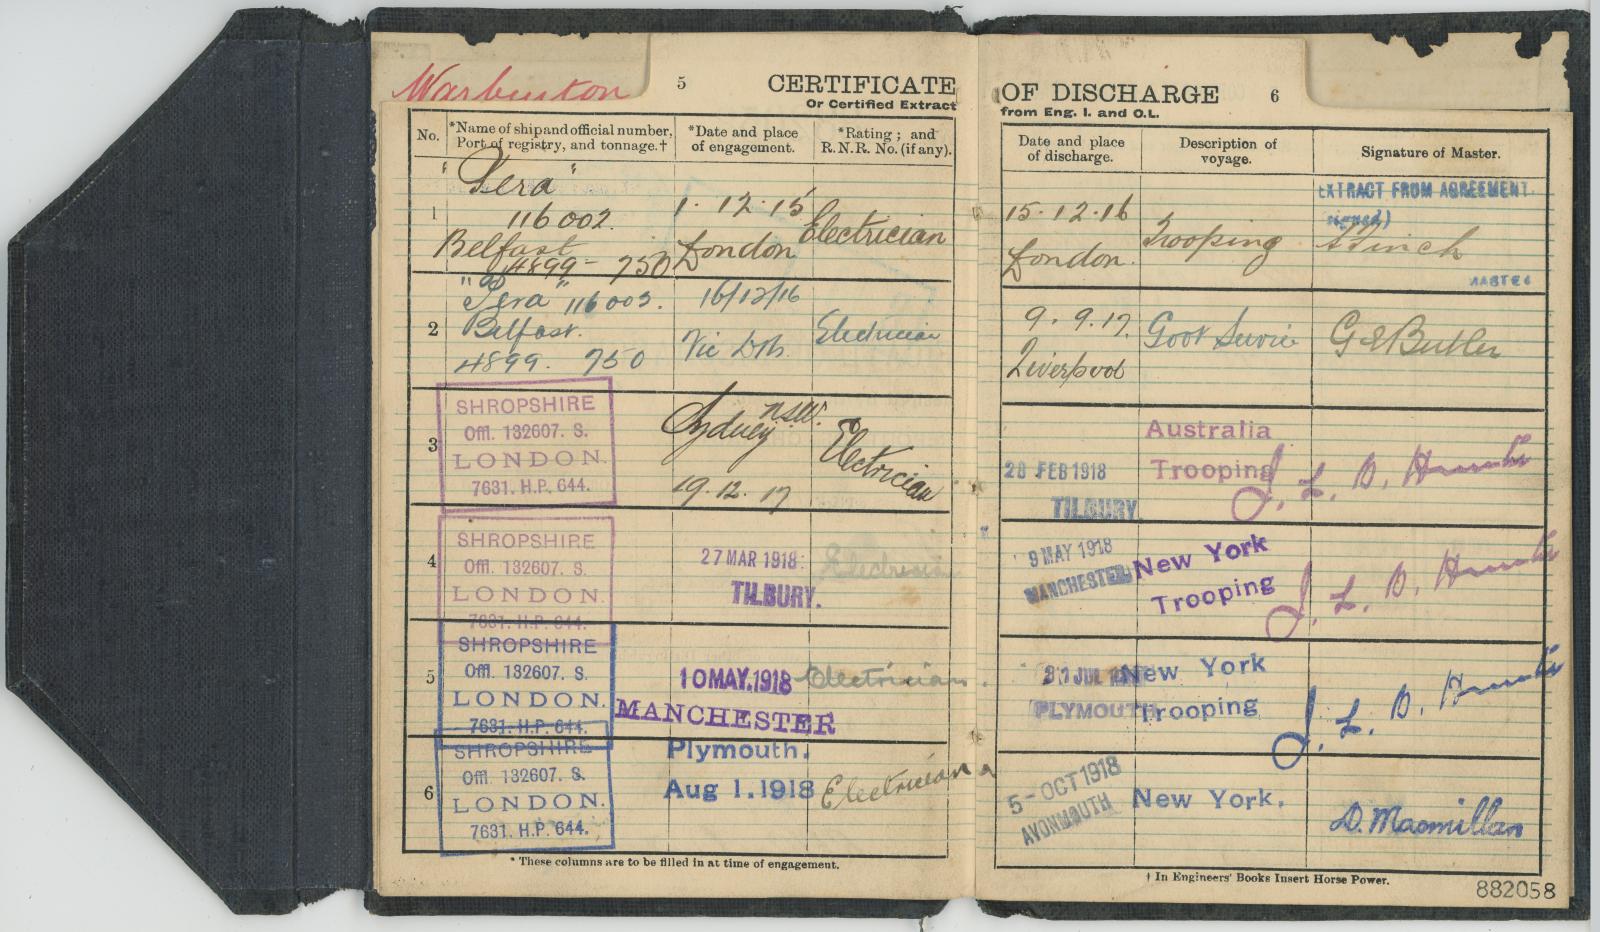 Warburton
5
CERTIFICATE
Or Certified Extract
No.
*Name of ship and official number, Port of registry, and tonnage.†
*Date and place of engagement.
*Rating; and R.N.R. No. (if any).
1
116002.
Belfast
4899 - 750
1.12.15
London
Electrician
2
116003.
Belfast.
4899. 750
16/12/16
Vic
Electrician
3
SHROPSHIRE
Offl. 132607. S.
LONDON.
7631. H.P. 644.
Sydney NSW.
19.12.17
Electrician
4
SHROPSHIRE
Offl. 132607. S.
LONDON.
7631. H.P. 644.
27 MAR 1918
TILBURY.
Electrician
5
SHROPSHIRE
Offl. 132607. S.
LONDON.
7631. H.P. 644.
10 MAY. 1918
MANCHESTER
Electrician.
6
SHROPSHIRE
Offl. 132607. S.
LONDON.
7631. H.P. 644.
Plymouth.
Aug 1. 1918
Electrician
* These columns are to be filled in at time of engagement.
OF DISCHARGE
6
from Eng. 1. and O.L.
Date and place of discharge.
Description of voyage.
Signature of Master.
15.12.16
London.
Trooping
EXTRACT FROM AGREEMENT
signed)
Finch
MASTER
9. 9.17.
Liverpool
Govt Service
G E Butler
28 FEB 1918
TILBURY
Australia
Trooping
J. L. B. H
9 MAY 1918
MANCHESTER
New York
Trooping
J. L. B. H
31 JUL
PLYMOUTH
New York
Trooping
J. L. B. H
5 - OCT 1918
AVONMOUTH
New York.
D. Macmillan
† In Engineers' Books Insert Horse Power.
882058